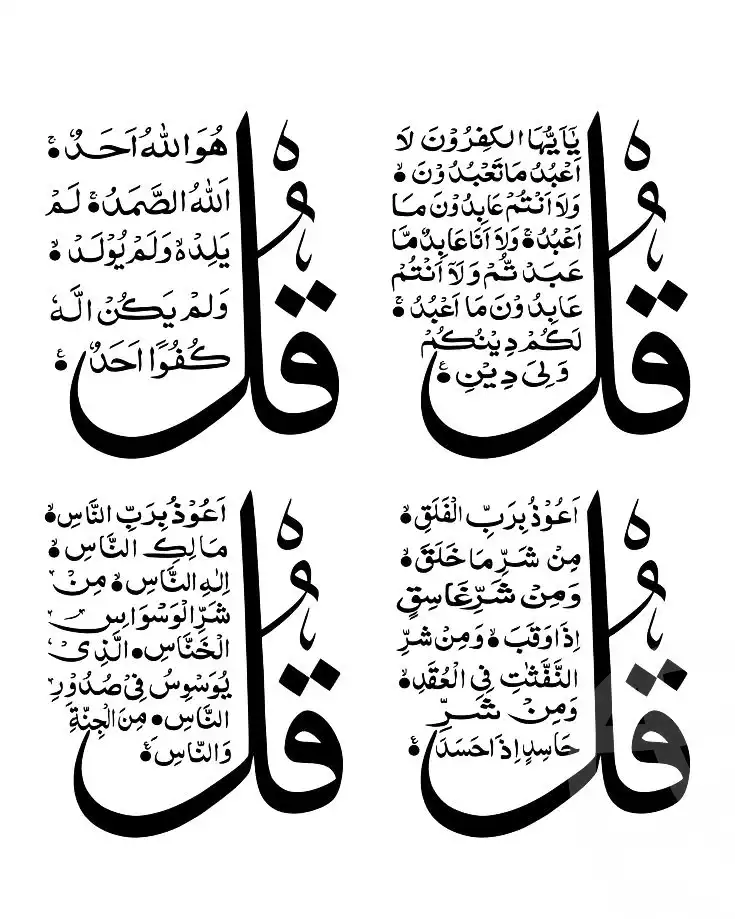 قُلْ
يٰٓاَيُّهَا الْكٰفِرُوْنَ لَا
اَعْبُدُ مَا تَعْبُدُوْنَ
وَلَا اَنْتُمْ عَابِدُوْنَ مَا
اَعْبُدُ وَلَا اَنَا عَابِدٌ مَّا
عَبَدْ تُّمْ وَلَا اَنْتُمْ
عَابِدُوْنَ مَا اَعْبُدُ
لَكُمْ دِيْنُكُمْ
وَلِىَ دِيْنِ
قُلْ
هُوَ اللهُ اَحَدٌ
اَللهُ الصَّمَدُ لَمْ
يَلِدْ وَلَمْ يُوْلَدْ
وَلَمْ يَكُنْ لَّهٗ
كُفُوًا اَحَدٌ
قُلْ
اَعُوْذُ بِرَبِّ الْفَلَقِ
مِنْ شَرِّ مَا خَلَقَ
وَمِنْ شَرِّ غَاسِقٍ
اِذَا وَقَبَ وَمِنْ شَرِّ
النَّفّٰثٰتِ فِى الْعُقَدِ
وَمِنْ شَرِّ
حَاسِدٍ اِذَا حَسَدَ
قُلْ
اَعُوْذُ بِرَبِّ النَّاسِ
مَالِكِ النَّاسِ
اِلٰهِ النَّاسِ مِنْ
شَرِّ الْوَسْوَاسِ
الْخَنَّاسِ الَّذِىْ
يُوَسْوِسُ فِىْ صُدُوْرِ
النَّاسِ مِنَ الْجِنَّةِ
وَالنَّاسِ